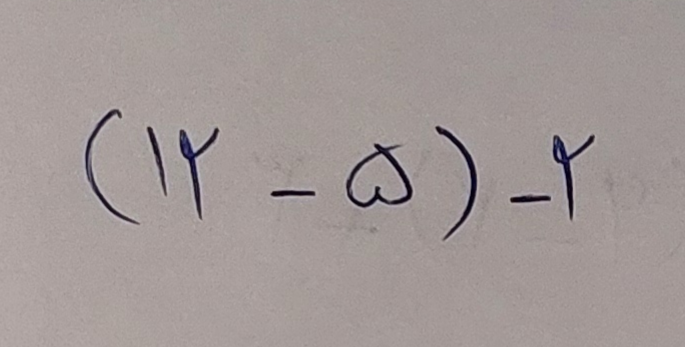 (۱۲ - ۵) - ۲